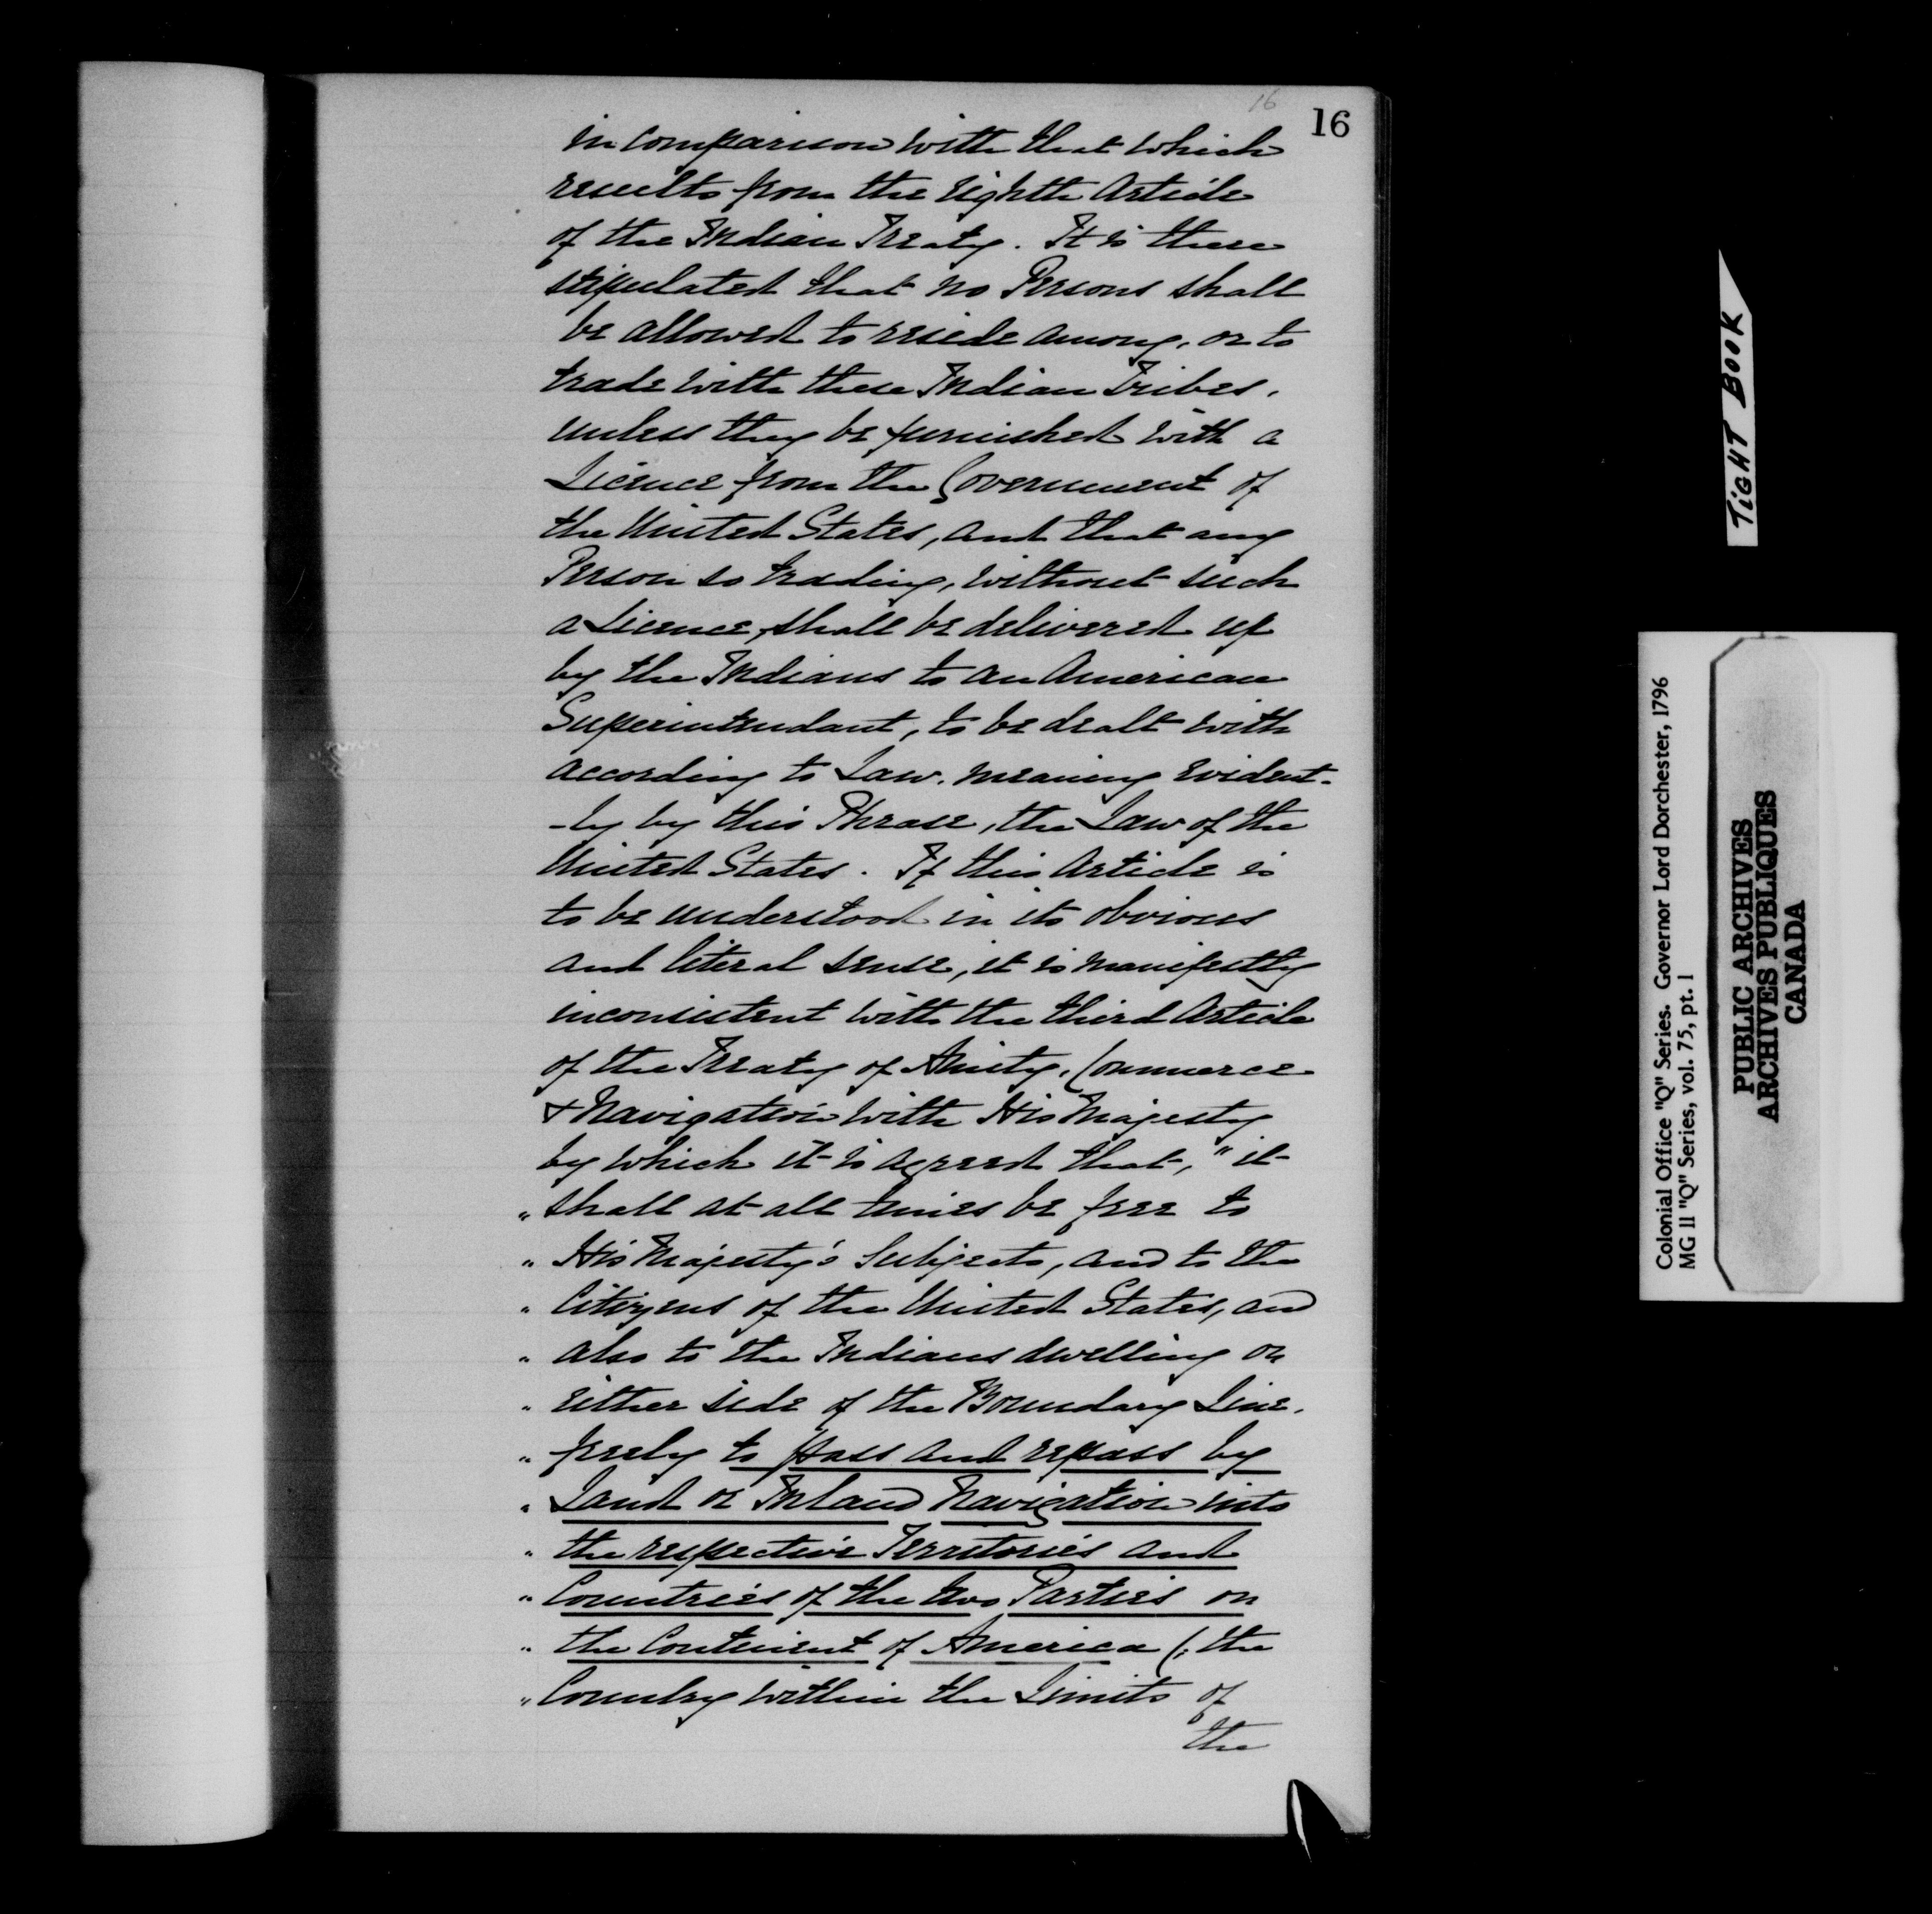 16
16
in comparison with that which
results from the eighth Article
of the Indian Treaty. It is there
stipulated that no Persons shall
be allowed to reside among, or to
trade with these Indian Tribes,
unless they be furnished with a
Licence from the Government of
the United States, and that any
Person so trading, without such
a Licence, shall be delivered up
by the Indians to an American
Superintendant, to be dealt with
according to Law, meaning evident-
-ly by this Phrase, the Law of the
United States. If this Article is
to be understood in its obvious
and literal sense, it is manifestly
inconsistent with the third Article
of the Treaty of Amity, Commerce
& Navigation with His Majesty
by which it is agreed that, "it
" shall at all times be free to
" His Majesty's Subjects, and to the
" Citizens of the United States, and
" also to the Indians dwelling on
" either side of the Boundary Line,
" freely to pass and repass by
" Land or Inland Navigation into
" the respective Territories and
" Countries of the two Parties on
" the Continent of America (: the
" Country within the Limits of
the
TIGHT BOOK
Colonial Office "Q" Series. Governor Lord Dorchester, 1796
MG 11 "Q" Series, vol. 75, pt. 1
PUBLIC ARCHIVES
ARCHIVES PUBLIQUES
CANADA